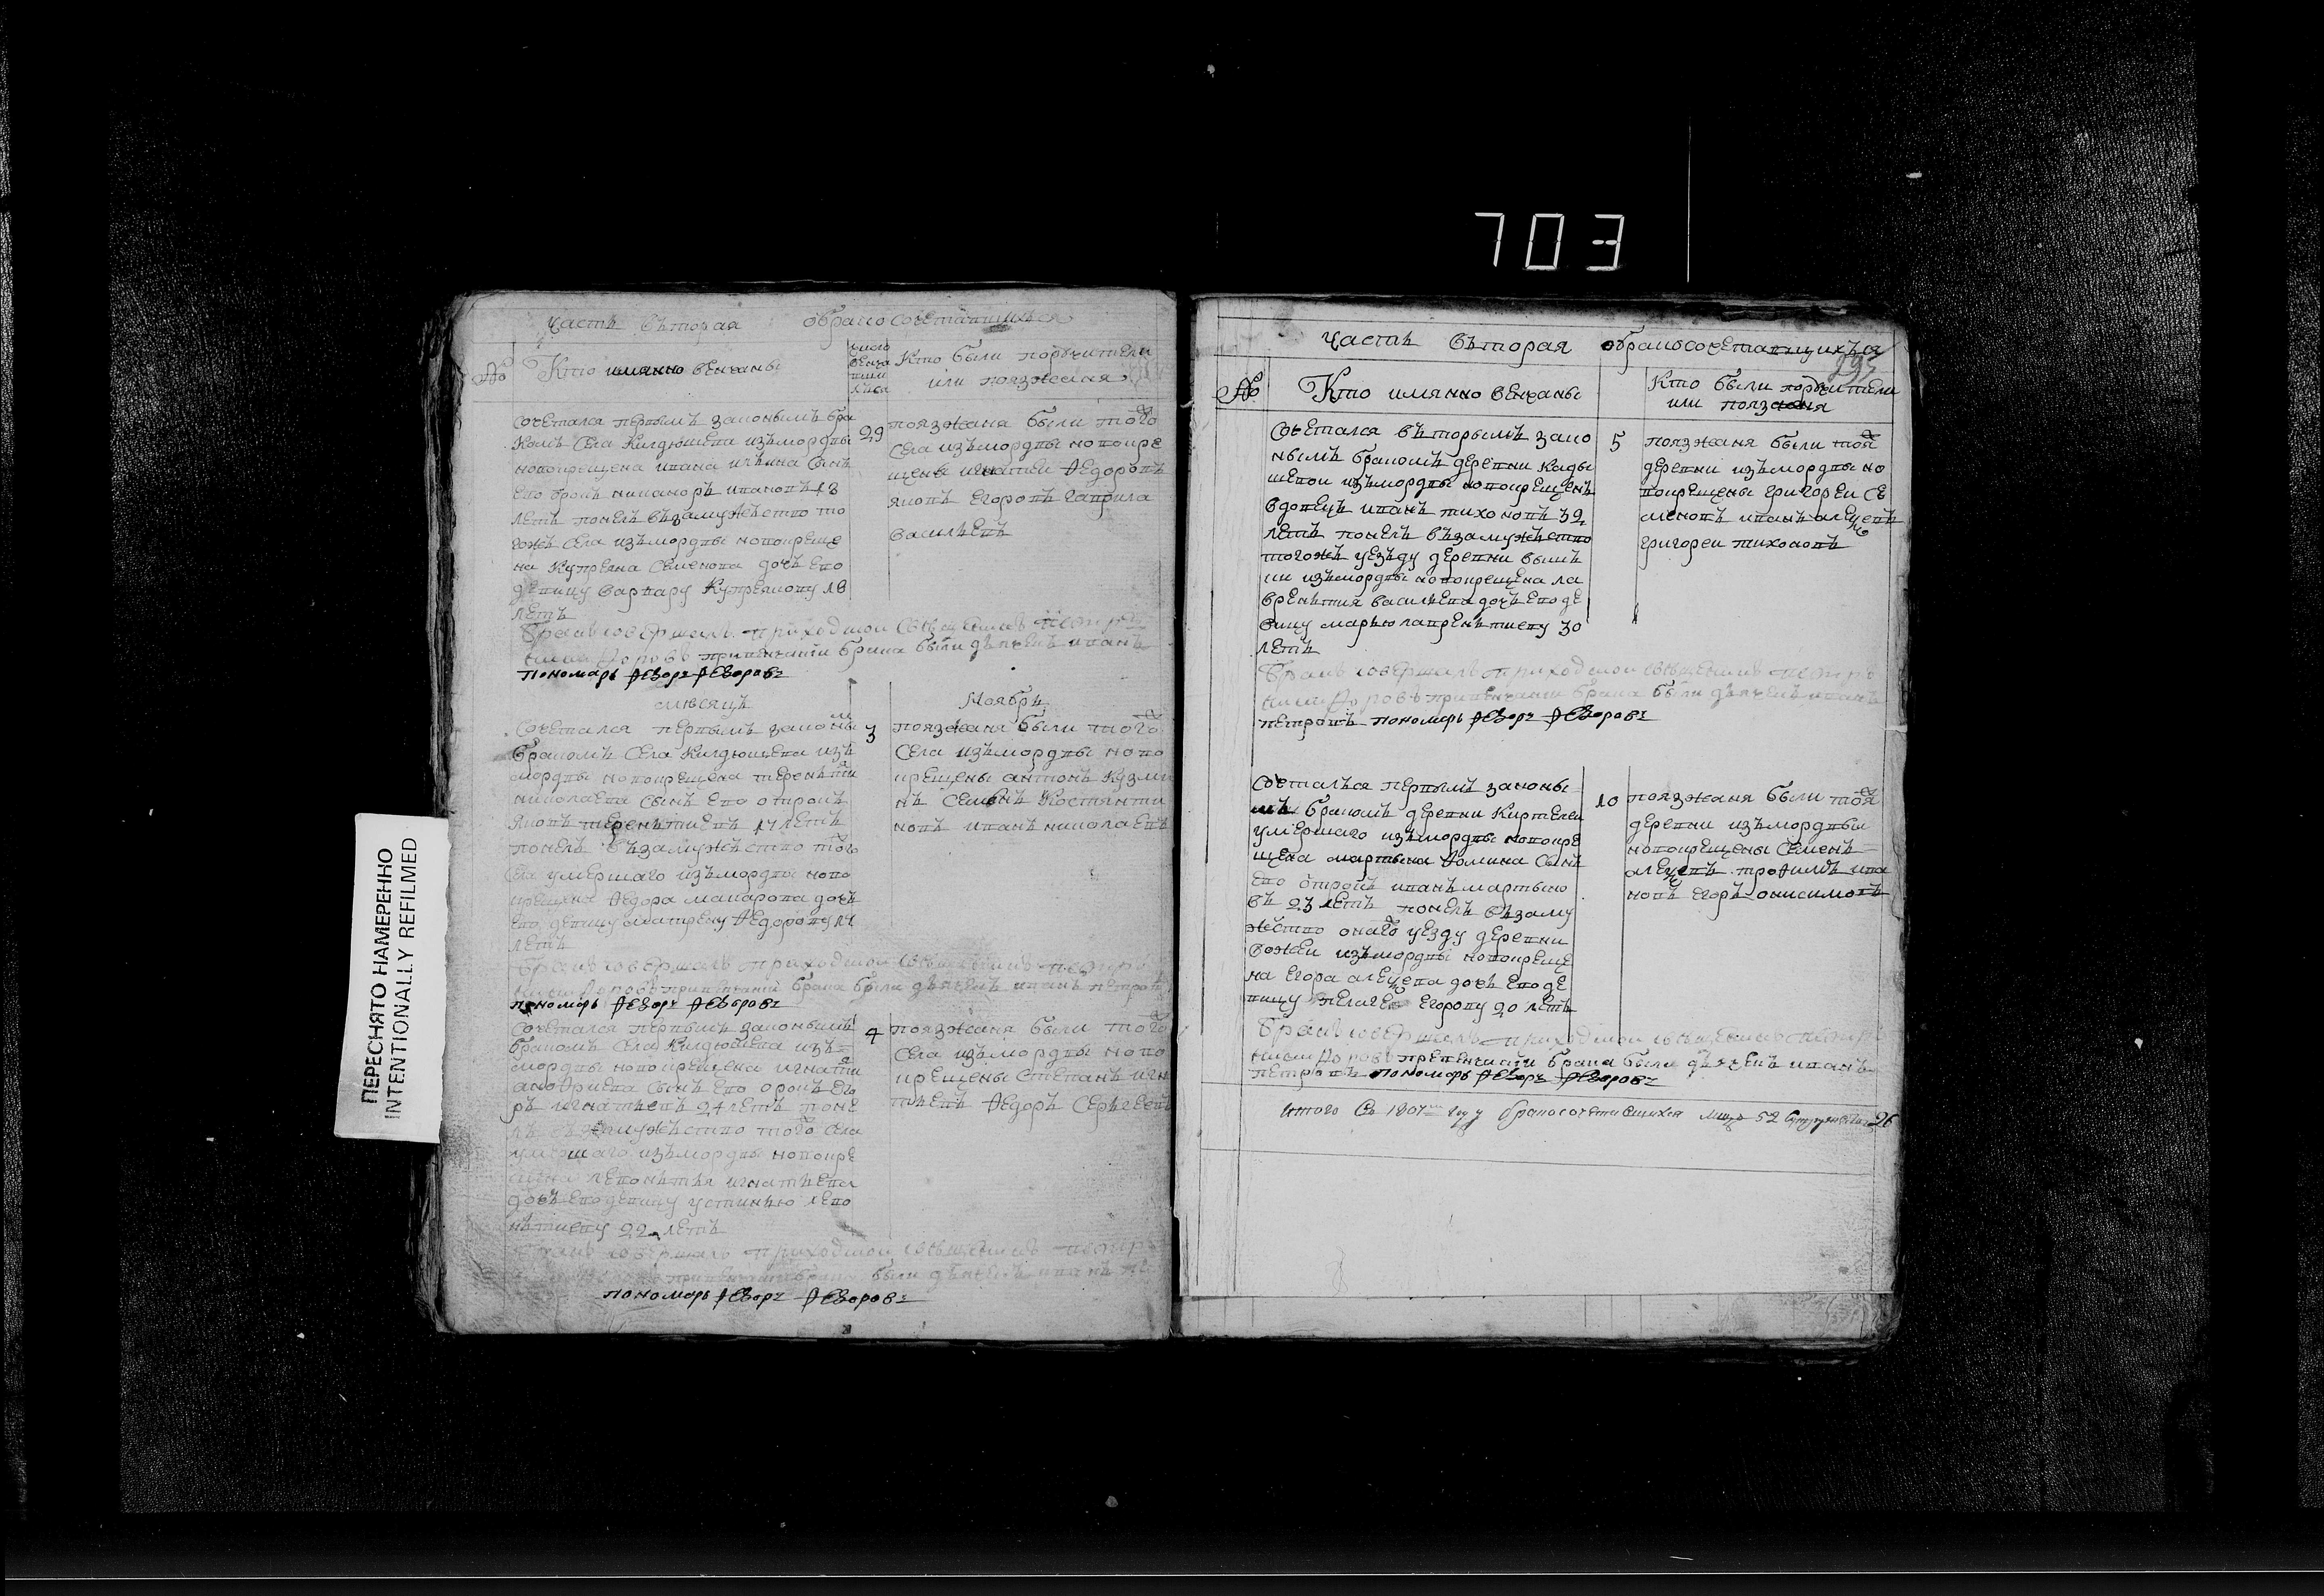 703
Часть вторая обрако сочетавшихъся
№ Кто имянно венчаны
число венча пши хъся
Кто были поручители или поязжаня
сочетался первымъ законымъ бра
комъ села Килдюшева изъ мордвы
новокрещена ивана ильина сынъ
ево трокъ никаноръ ивановъ 18
летъ понелъ възамужъство то
гожъ села изъ мордвы новокреще
на Купреяна семенова дочь ево
девицу варвару Купреянову 18
летъ
29
поязжаня были того
села изъ мордвы новокре
щены игнатей Федоровъ
яковъ егоровъ гаврила
васильевъ
Бракъ совершалъ приходской священникъ петръ
привенчании брака были дьячекъ иванъ
пономарь Федоръ Федоровъ
месяцъ Ноябрь
Сочетался первымъ законы
бракомъ села Килдюшева изъ
мордвы новокрещена терентия
николаева сынъ ево отрокъ
яковъ терентиевъ 17 летъ
понелъ възамужъство того
села умершаго изъ мордвы ново
крещена Федора макарова дочь
ево девицу матрену Федорову 17
летъ
3
поязжаня были того
села изъ мордвы ново
крещены антонъ Кузми
нъ семенъ Костянти
новъ иванъ николаевъ
Бракъ совершалъ приходской священникъ петръ
привенчании брака были дьячекъ иванъ петровъ
пономарь Федоръ Федоровъ
Сочетался первымъ законымъ
бракомъ села Килдюшева изъ
мордвы новокрещена игнатия
сынъ ево отрокъ его
ръ игнатьевъ 24 летъ поне
лъ възамужъство того села
умершаго изъ мордвы новокре
щена леонтия игнатьева
дочь ево девицу устинью лево
нътиеву 22 летъ
4
поязжаня были того
села изъ мордвы ново
крещены степанъ игна
тьевъ Федоръ Сергеевъ
Бракъ совершалъ приходской священникъ петръ
привенчании брака были дьячекъ иванъ
пономарь Федоръ Федоровъ
ПЕРЕСНЯТО НАМЕРЕННО
INTENTIONALLY REFILMED
Часть вторая обракосочетавшихъся
№ Кто имянно венчаны
Кто были поручители
или поязжаня
Сочетался въторымъ зако
нымъ бракомъ деревни Кады
шевои изъ мордвы новокрещенъ
вдовецъ иванъ тихоновъ 32
летъ понелъ възамужъство
тогожъ уезъду деревни
изъ мордвы новокрещена ла
врентия васильева дочь ево де
вицу марью лаврентиеву 30
летъ
5
поязжаня были тоя
деревни изъ мордвы но
вокрещены григореи се
меновъ иванъ алексеевъ
григореи тихоновъ
Бракъ совершалъ приходской священникъ петръ
привенчании брака были дьячекъ иванъ
петровъ пономарь Федоръ Федоровъ
Сочеталъся первымъ законы
мъ бракомъ деревни Киртелеи
умершаго изъ мордвы новокре
щена мартына Фомина сынъ
ево отрокъ иванъ мартыно
въ 23 летъ понелъ възаму
жество онаго уезду деревни
изъ мордвы новокреще
на егора алексеева дочь ево де
вицу пелагею егорову 20 летъ
10
поязжаня были тоя
деревни изъ мордвы
новокрещены семенъ
алексеевъ трофимъ ива
новъ егоръ онисимовъ
Бракъ совершалъ приходской священникъ петръ
превенчании брака были дьячекъ иванъ
петровъ пономарь Федоръ Федоровъ
итого въ 1807 году бракосочетавшихся 52 26